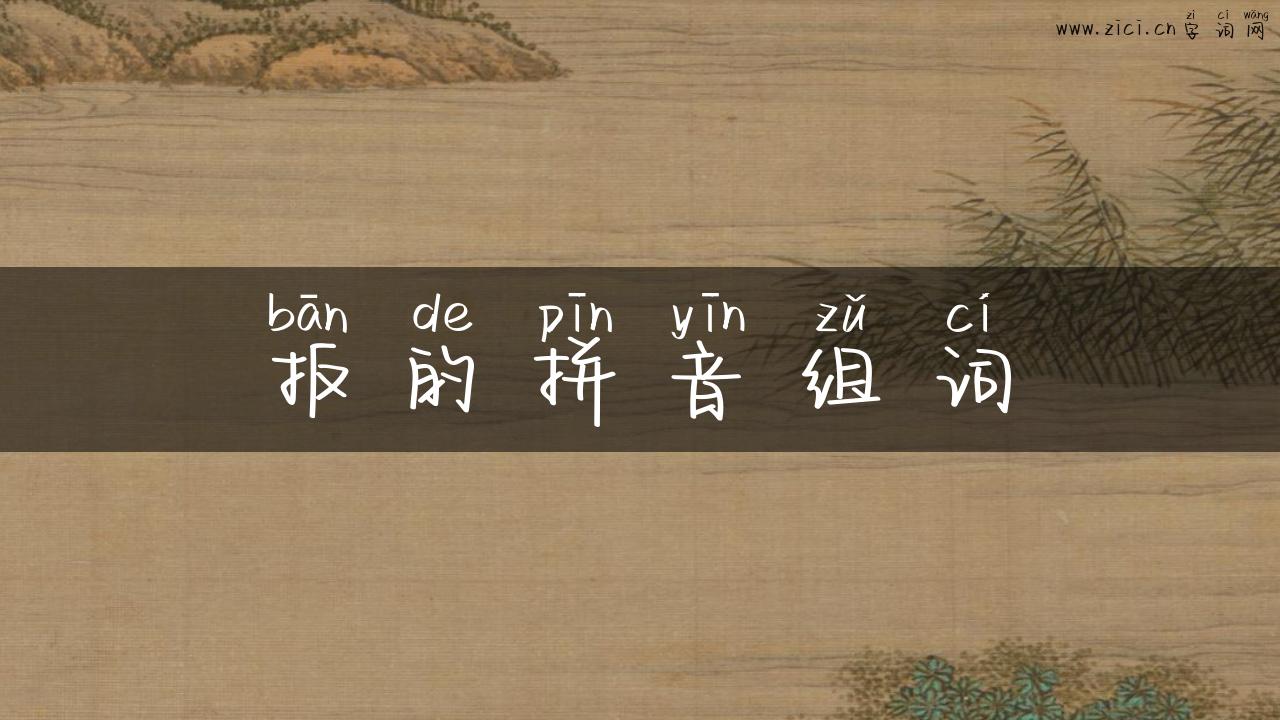 zì cí wǎng
www.zici.cn 字 词 网
bān de pīn yīn zǔ cí
扳 的 拼 音 组 词